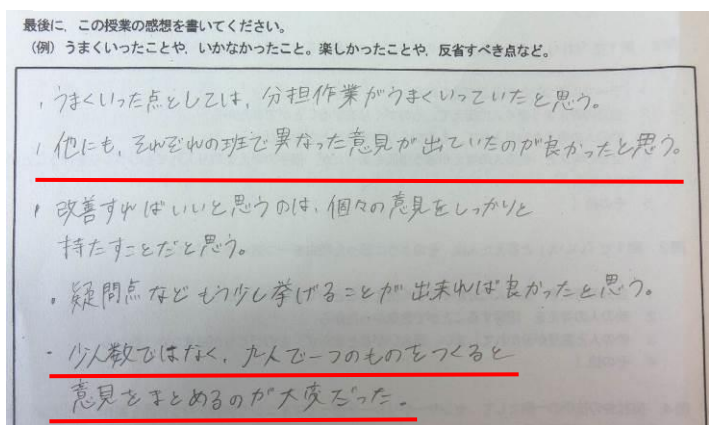 最後に、この授業の感想を書いてください。
(例)うまくいったことや、いかなかったこと。楽しかったことや、反省すべき点など。
・うまくいった点としては、分担作業がうまくいっていたと思う。
・他にも、それぞれの班で異なった意見が出ていたのが良かったと思う。
・改善すればいいと思うのは、個々の意見をしっかりと
持たすことだと思う。
・疑問点などもう少し挙げることが出来れば良かったと思う。
・少人数ではなく、九人で一つのものをつくると
意見をまとめるのが大変だった。